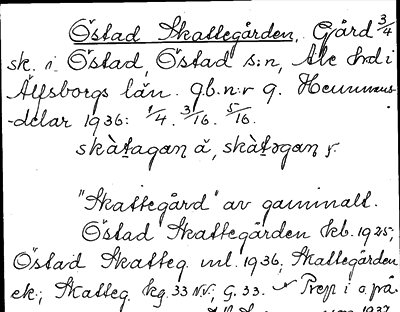 Östad Skattegården, Gård 3/4
sk. i Östad, Östad s:n, Ale hd i
Älfsborgs län. Gb.n:r 9. Hemmans-
-delar 1936: 1/4. 3/16. 5/16.
skàtagan ă, skàtəgan
"Skattegård" av gammalt.
Östad Skattegården Kb. 1925;
Östad Skatteg. ml. 1936; Skattegården
ek.; Skatteg. Kg. 33 NV.; G. 33. Prep i o. på
1937